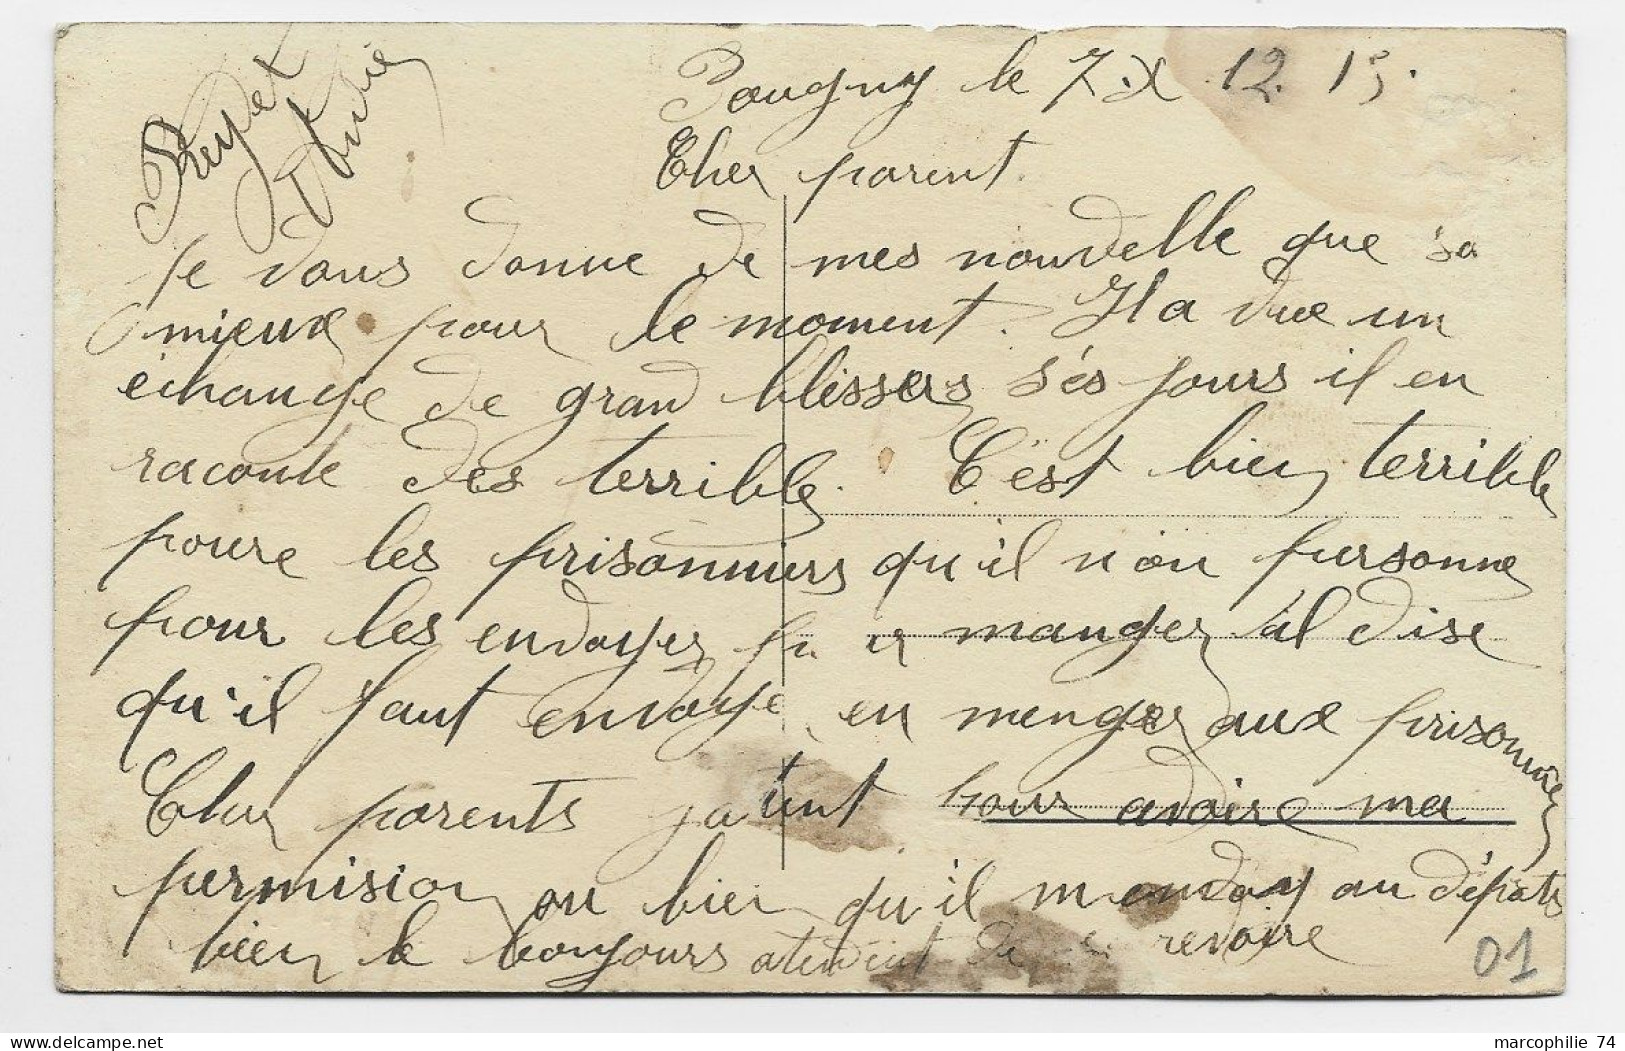 Reypet
André
Pougny le 7.X 12.15.
Cher parent.
Je vous donne de mes nouvelle que sa
mieux pour le moment. Il a vue un
échange de grand blissers s'es jours il en
raconte des terrible. C'est bien terrible
poure les prisonniers qu'il n'on personne
pour les envoyer a manger il dise
qu'il faut envoye en menger aux prisonnier
Cher parents j'atent pour avoire ma
permision ou bien qu'il m'envoy au dépots
bien le bonjours atendent de revoire
01
marcophilie 74